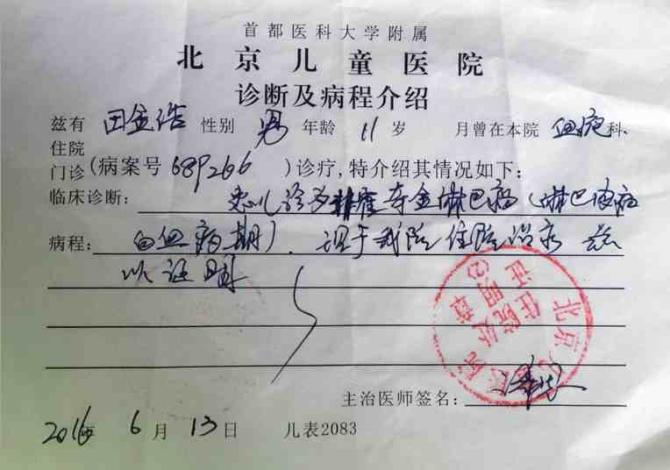 首都医科大学附属
北京儿童医院
诊断及病程介绍
兹有 田金浩 性别 男 年龄 11 岁 月曾在本院 血液 科
住院
门诊(病案号 689266 )诊疗,特介绍其情况如下:
临床诊断: 患儿诊为非霍奇金淋巴瘤(淋巴瘤
病程: 白血病期). 现于我院住院治疗 兹
以证明
北京儿 医院
住院处
证明章
(2)
主治医师签名:
2016 6 月 13 日 儿表2083